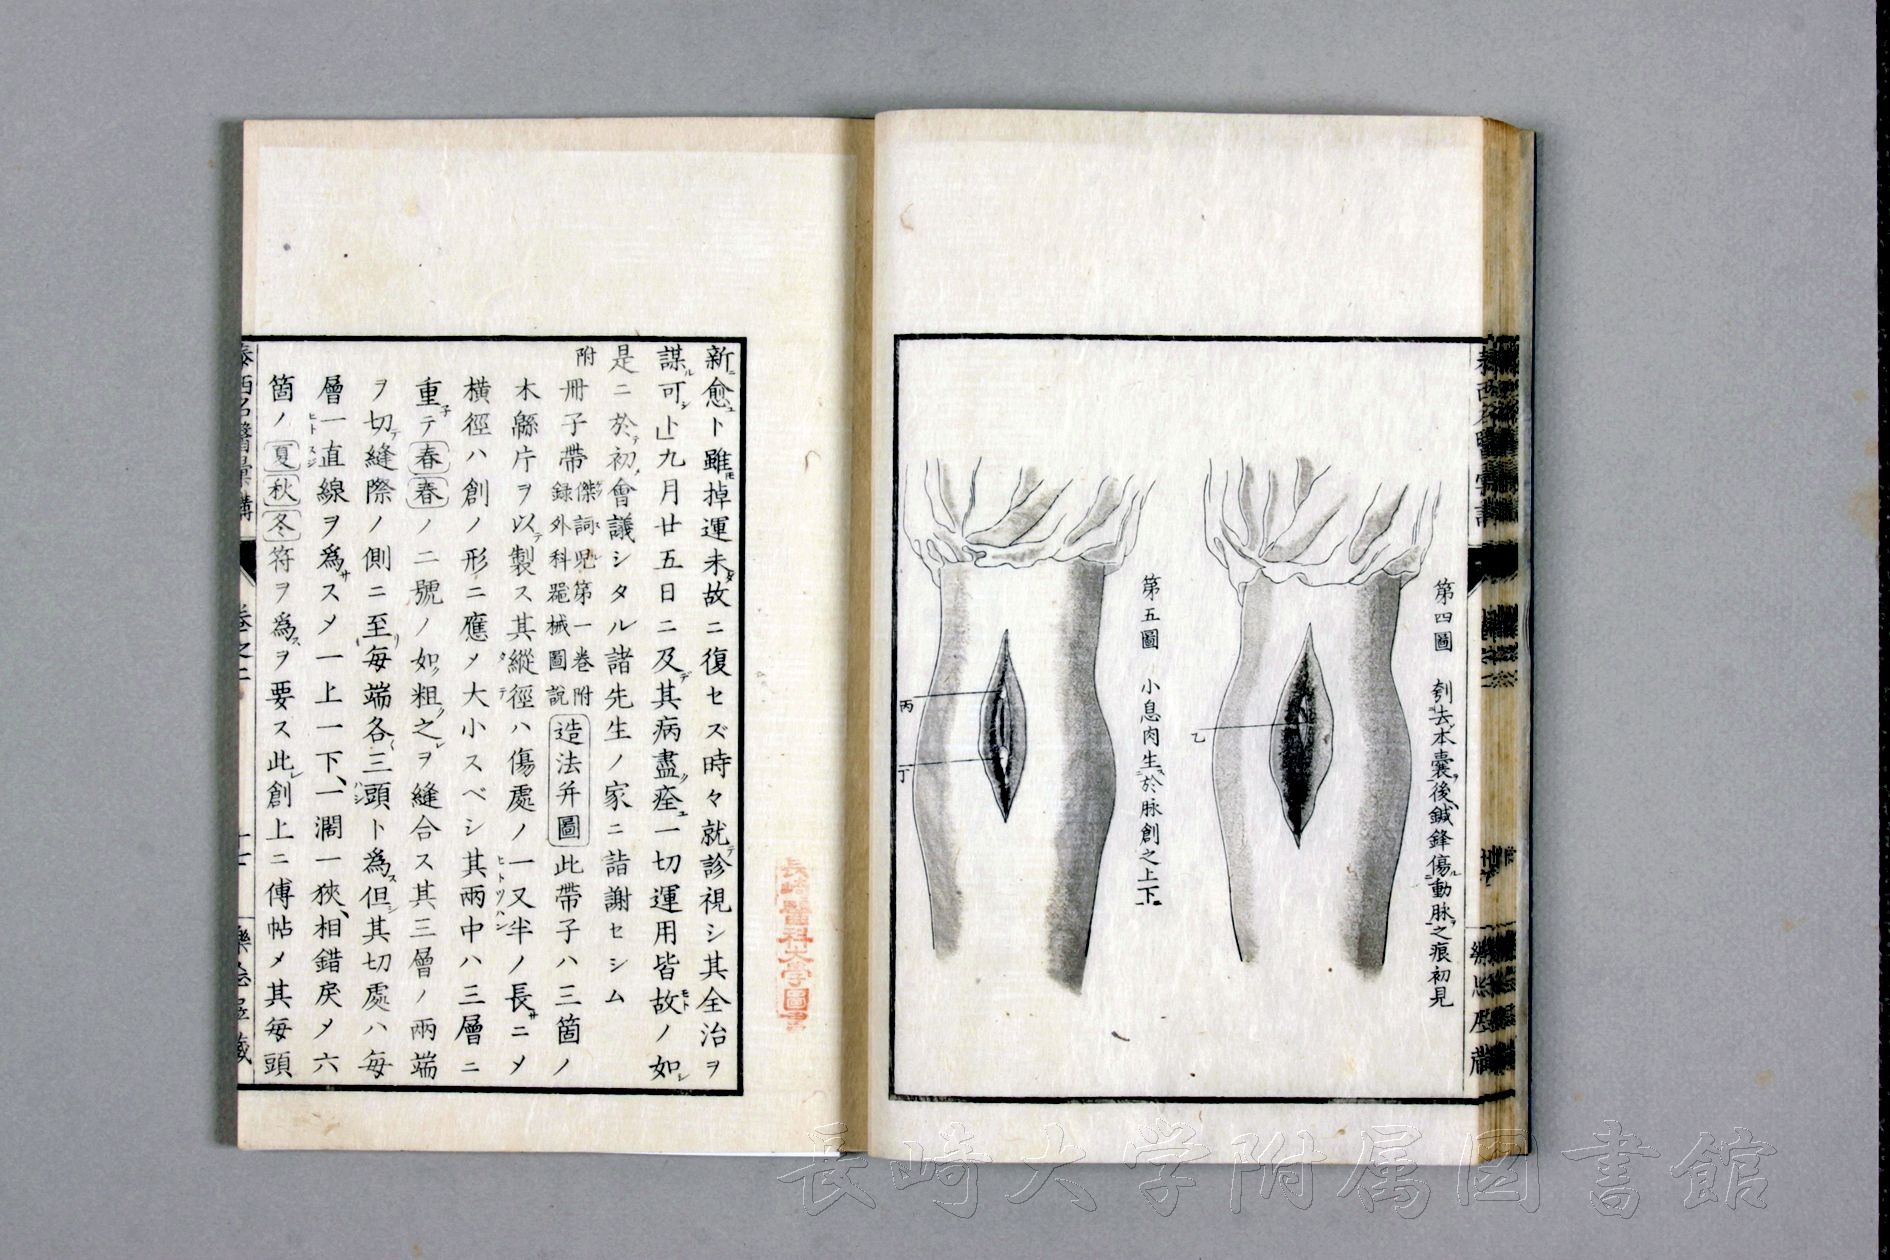 第四圖 刳去本囊後鍼鋒傷動脉之痕初見
乙
第五圖 小息肉生於脉創之上下
丙
丁
新愈ト雖モ掉運未タ故ニ復セズ時々就テ診視シ其全治ヲ
謀ル可シト」九月廿五日ニ及デ其病盡ク痊ユ一切運用皆故モトノ如シ
是ニ於テ初メ會議シタル諸先生ノ家ニ詣謝セシム
附 冊子帶 傑詞兒第一卷附録外科噐械圖説 造法并圖 此帶子ハ三箇ノ
木緜片ヲ以テ製ス其縱徑タテハ傷處ノ一又半ヒトツハンノ長サニメ
横徑ハ創ノ形ニ應メ大小スベシ其兩中ハ三層ニ
重子テ春春ノ二號ノ如ク粗ク之ヲ縫合ス其三層ノ兩端
ヲ切テ縫際ノ側ニ至リ每端各〻三頭ハシト爲ス但シ其切處ハ每
層一直線ヒトスジヲ爲サスメ一上一下、一濶一狹、相錯戾メ六
箇ノ夏秋冬符ヲ爲スヲ要ス此レ創上ニ傅帖メ其每頭
泰西名醫彙講 卷之二
長崎醫科大學圖書
長崎大学附属図書館